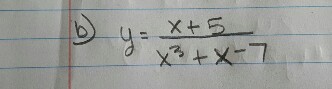 b) y = (x + 5)/(x³ + x - 7)